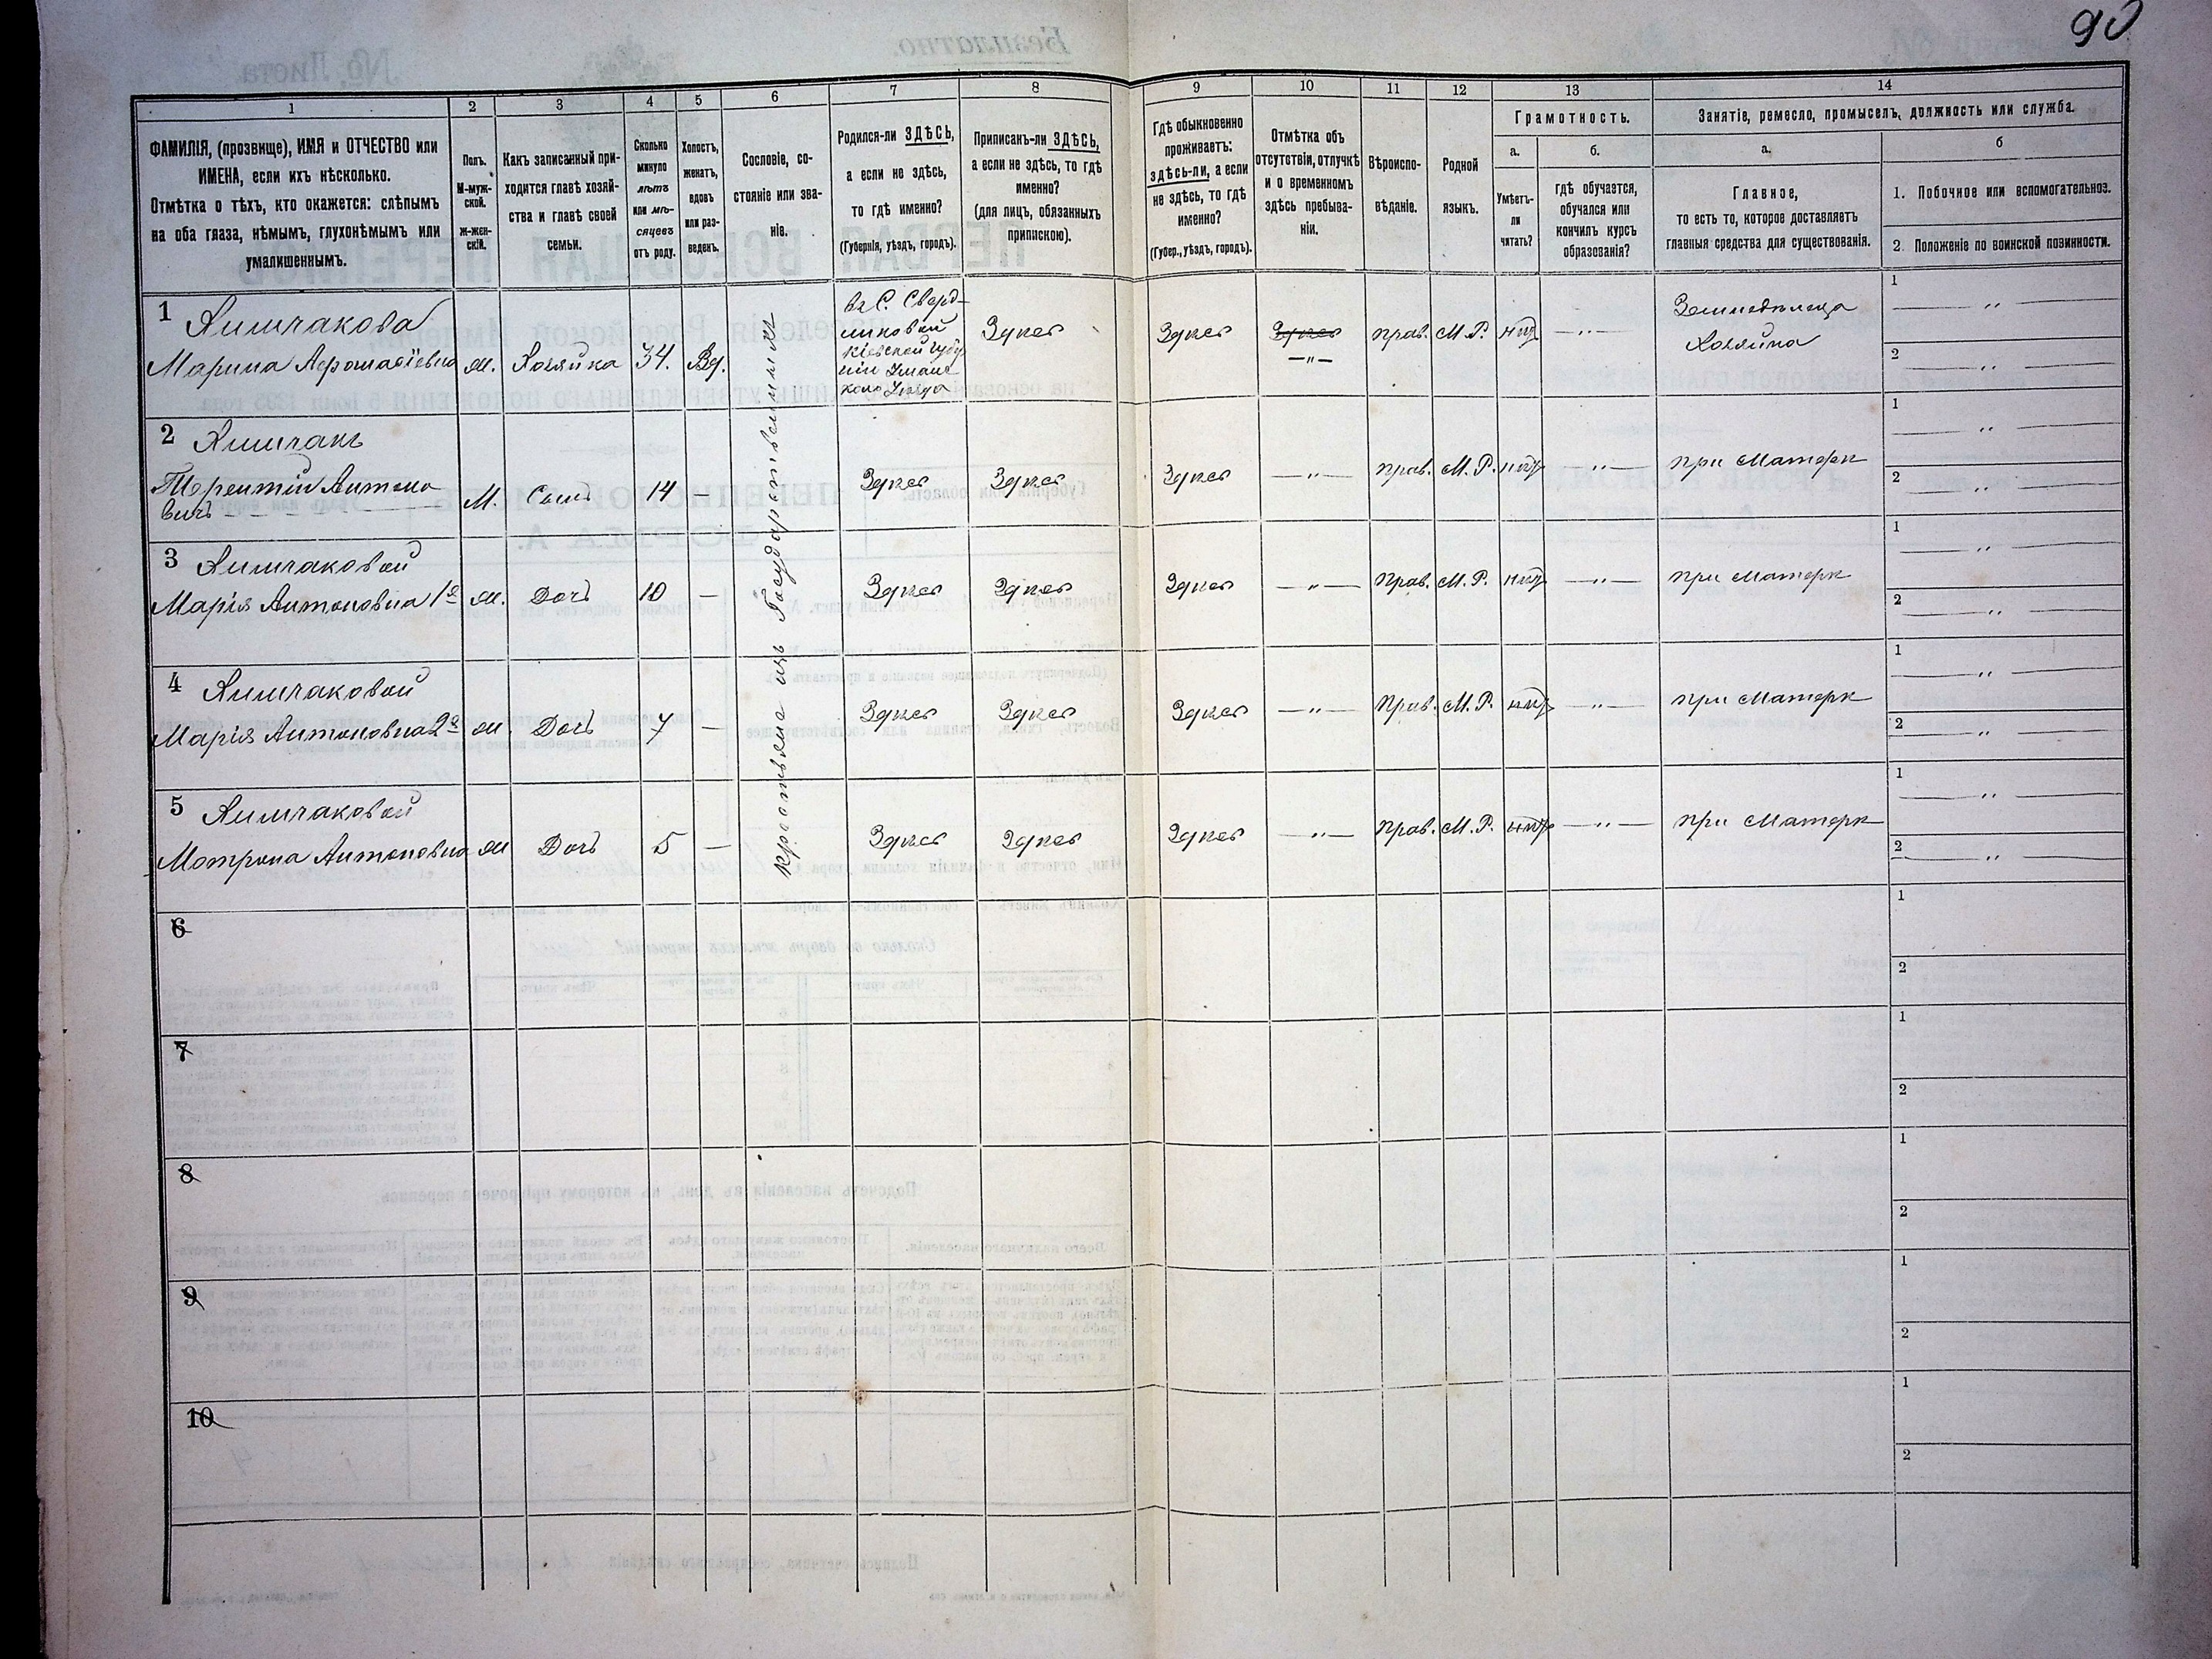 90
1
2
3
4
5
6
7
8
9
10
11
12
13
14
ФАМИЛІЯ, (прозвище), ИМЯ и ОТЧЕСТВО или
ИМЕНА, если ихъ нѣсколько.
Отмѣтка о тѣхъ, кто окажется: слѣпымъ
на оба глаза, нѣмымъ, глухонѣмымъ или
умалишеннымъ.
Полъ.
М-муж-
ской.
Ж-жен-
скій.
Какъ записанный при-
ходится главѣ хозяй-
ства и главѣ своей
семьи.
Сколько
минуло
лѣтъ
или мѣ-
сяцевъ
отъ роду.
Холостъ,
женатъ,
вдовъ
или раз-
веденъ.
Сословіе, со-
стояніе или зва-
ніе.
Родился-ли ЗДѢСЬ,
а если не здѣсь,
то гдѣ именно?
(Губернія, уѣздъ, городъ).
Приписанъ-ли ЗДѢСЬ,
а если не здѣсь, то гдѣ
именно?
(для лицъ, обязанныхъ
припискою).
Гдѣ обыкновенно
проживаетъ:
здѣсь-ли, а если
не здѣсь, то гдѣ
именно?
(Губер., уѣздъ, городъ).
Отмѣтка объ
отсутствіи, отлучкѣ
и о временномъ
здѣсь пребыва-
ніи.
Вѣроиспо-
вѣданіе.
Родной
языкъ.
Грамотность.
а.
б.
Умѣетъ-
ли
читать?
гдѣ обучается,
обучался или
кончилъ курсъ
образованія?
Занятіе, ремесло, промыселъ, должность или служба.
а.
б
Главное,
то есть то, которое доставляетъ
главныя средства для существованія.
1. Побочное или вспомогательное.
2. Положеніе по воинской повинности.
1
Марина
Хозяйка
34.
Вд.
Кіевской
Здѣсь
Здѣсь
Здѣсь
прав.
М. Р.
нѣт
Хозяйка
1
2
2
Терентій Антоно
вичъ
М.
Сынъ
14
—
Здѣсь
Здѣсь
Здѣсь
—„—
прав.
М. Р.
нѣт
—„—
при Матерѣ
1
2
3
Марія Антоновна 1я
ж.
Дочь
10
—
Здѣсь
Здѣсь
Здѣсь
—„—
прав.
М. Р.
нѣт
—„—
при Матерѣ
1
2
4
Марія Антоновна 2я
ж.
Дочь
7
—
Здѣсь
Здѣсь
Здѣсь
—„—
прав.
М. Р.
нѣт
—„—
при Матерѣ
1
2
5
Мотрона Антоновна
ж
Дочь
5
—
Здѣсь
Здѣсь
Здѣсь
—„—
прав.
М. Р.
нѣт
—„—
при Матерѣ
1
2
6
1
2
7
1
2
8
1
2
9
1
2
10
1
2